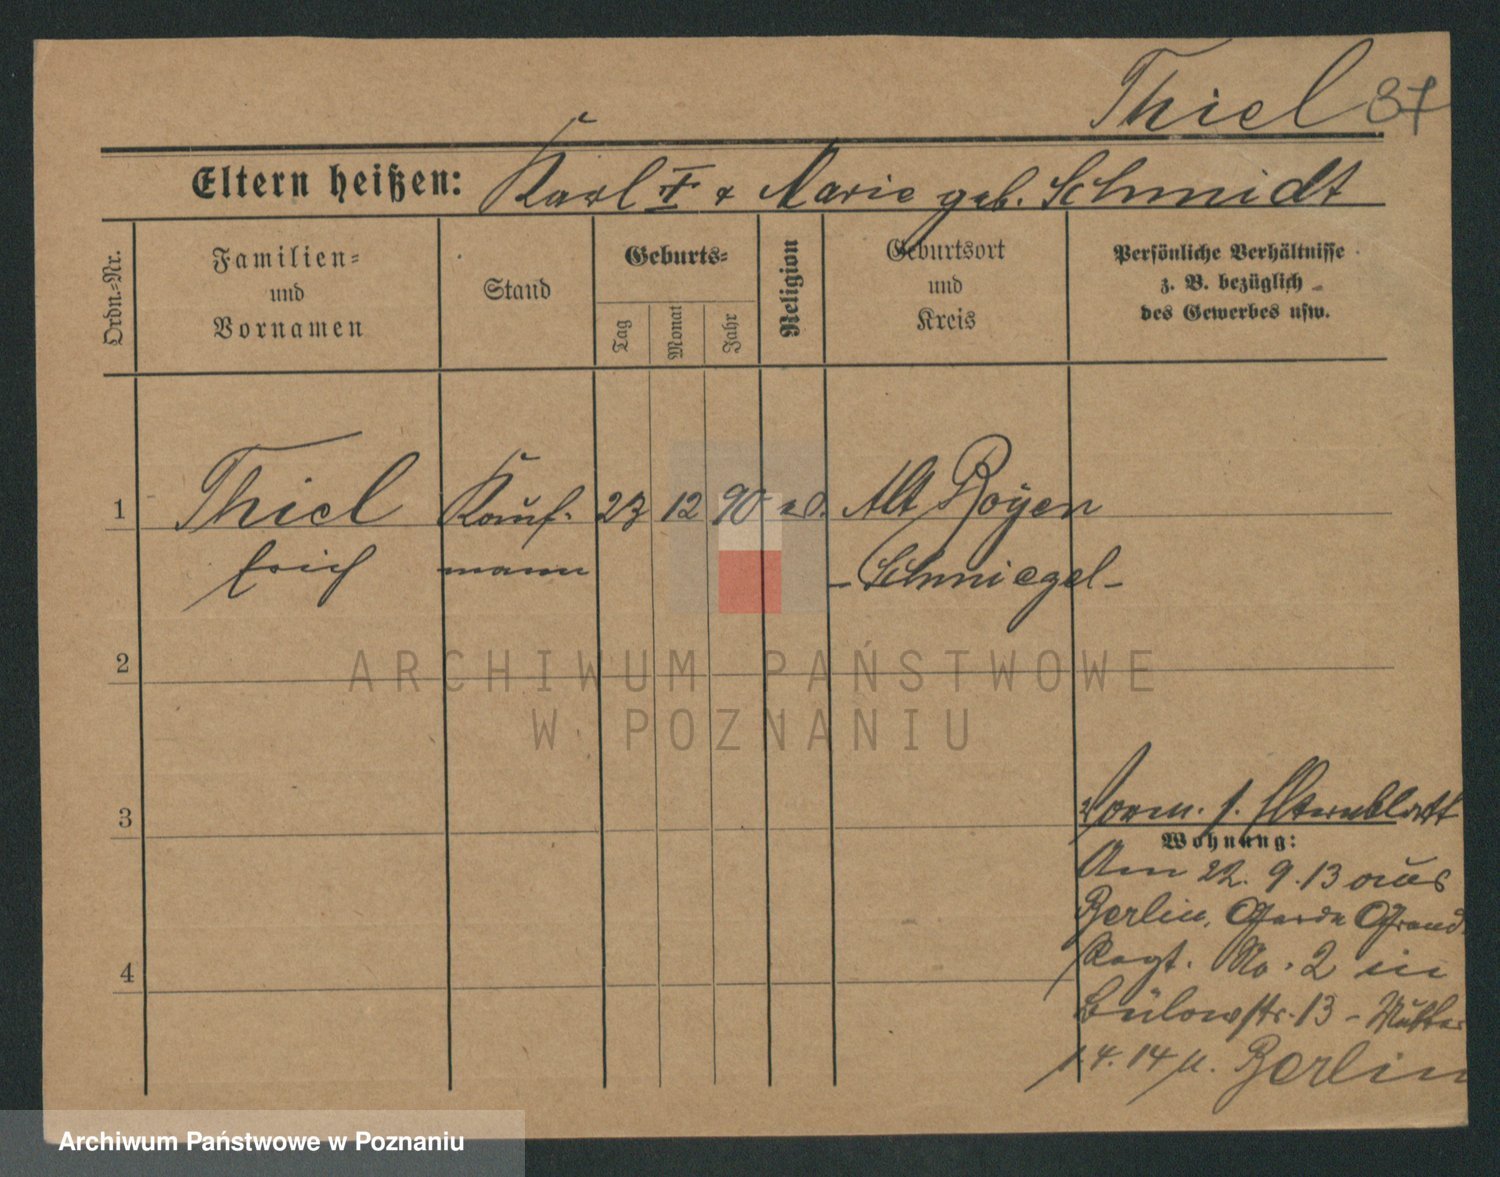 Thiel 87
Eltern heißen: Karl † + Marie geb. Schmidt
Ordn.=Nr.
Familien=
und
Vornamen
Stand
Geburts=
Tag
Monat
Jahr
Religion
Geburtsort
und
Kreis
Persönliche Verhältnisse
z. B. bezüglich
des Gewerbes usw.
1 Thiel Kauf- 23 12 90 ev. Alt Boyen
Erich mann - Schmiegel -
2
3
4
Vorm. s. Elternblatt
Wohnung:
Am 22. 9. 13 aus
Berlin, Garde Grend.
Regt. No. 2 in
Bülowstr. 13 - Mutter
1.4. 14 n. Berlin
ARCHIWUM PAŃSTWOWE
W POZNANIU
Archiwum Państwowe w Poznaniu